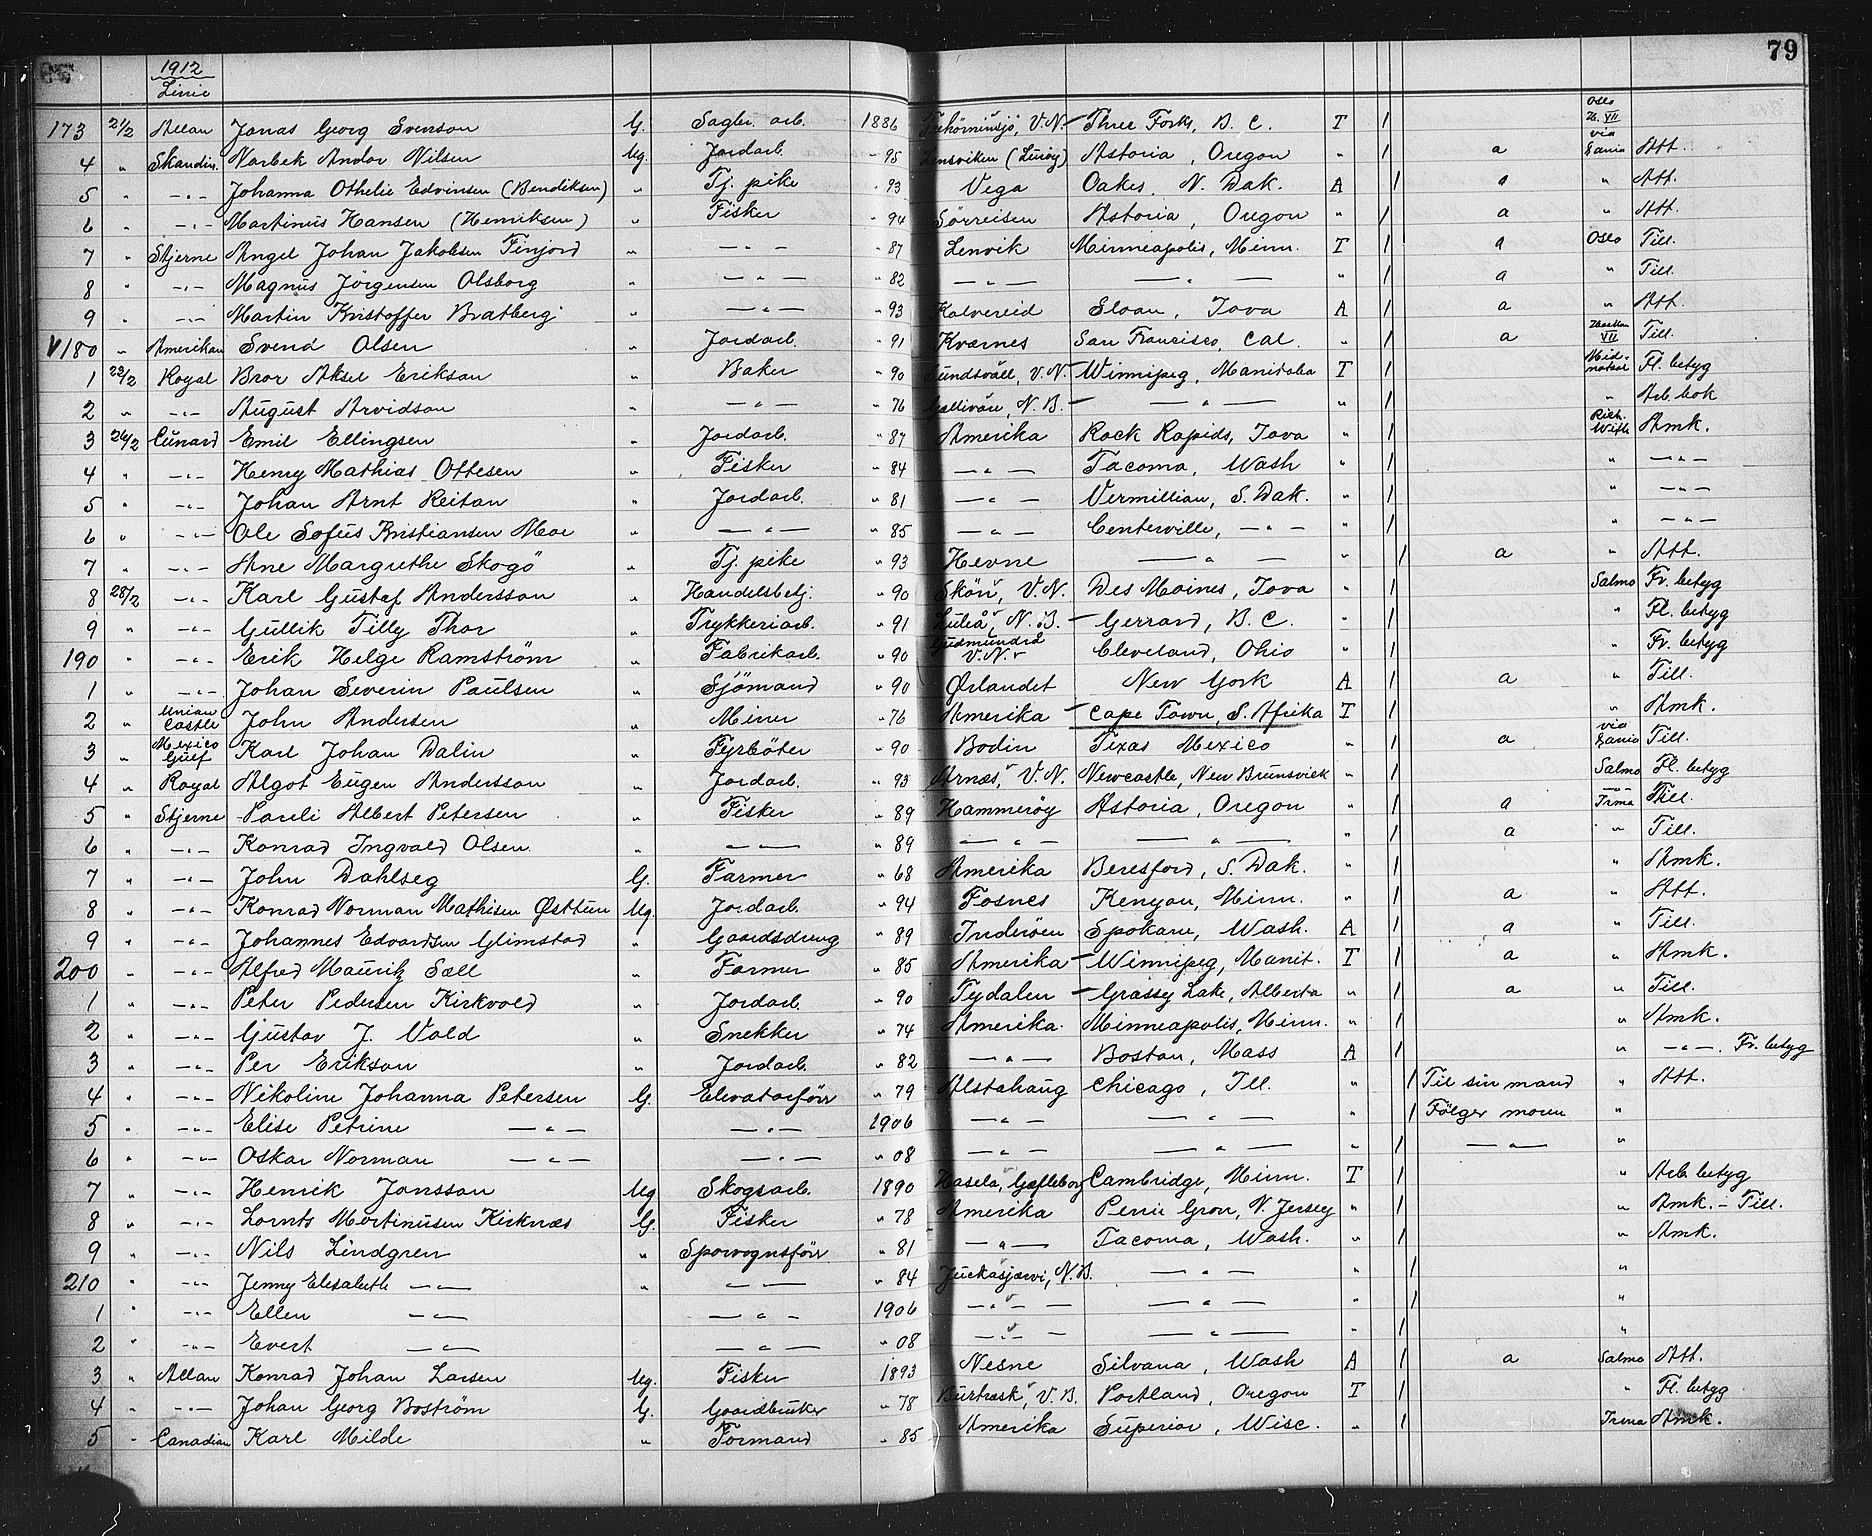 79
1912
Linie
173 21/2 Allan Jonas Georg Svenson G. Sagbr. arb. 1886 V.N. - Three Forks, B. C. T 1 Oslo
4 " Skandin. Norbek Andor Nilsen Ug. Jordarb. " 95 Lensviken Astoria, Oregon " 1 a via Att.
5 " -"- Johanna Othelie Edvinsen (Bendiksen) " Tj. pike " 93 Vega Oakes, N. Dak. A 1 a " Att.
6 " -"- Martinus Hansen (Henriksen) " Fisker " 94 Sørreisen Astoria, Oregon " 1 a " Att.
7 " Stjerne Angel Johan Jakobsen Finjord " -"- " 87 Lenvik Minneapolis, Minn. T 1 a Oslo Till.
8 " -"- Magnus Jörgensen Olsborg " -"- " 82 -"- -"- " 1 a " Till.
9 " -"- Martin Kristoffer Bratberg " -"- " 93 Kolvereid Sloan, Iova A 1 a " Att.
V180 " Amerikan Svend Olsen " Jordarb. " 91 Kværnes San Francisco, Cal. " 1 a VII Till.
1 23/2 Royal Bror Aksel Erikson " Baker " 90 Sundsväll, V.N. - Winnipeg, Manitoba T 1 Midnatsol Fl. betyg
2 " -"- August Arvidson " -"- " 76 Gellivare, N.B. - -"- " 1 " Arb. bok
3 26/2 Cunard Emil Ellingsen " Jordarb. " 87 Amerika Rock Rapids, Iova " 1 Rich. With Amk.
4 " -"- Henry Mathias Ottesen " Fisker " 84 -"- Tacoma, Wash " 1 " -"-
5 " -"- Johan Arnt Reitan " Jordarb. " 81 -"- Vermillian, S. Dak. " 1 " -"-
6 " -"- Ole Sofus Kristiansen Moe " -"- " 85 -"- Centerville, -"- " 1 " -"-
7 " -"- Ane Margrethe Skogö " Tj. pike " 93 Hevne -"- " 1 a " Att.
8 28/2 -"- Karl Gustaf Andersson " Handelsbetj. " 90 Skön, V.N. Des Moines, Iova " 1 Salmo Fr. betyg
9 " -"- Gullik Tilly Thor " Trykkeriarb. " 91 Luleå, N.B. - Gerrard, B. C. " 1 " Fl. betyg
190 " -"- Erik Helge Ramström " Fabrikarb. " 90 Gudmundrå V.N. Cleveland, Ohio " 1 " Fr. betyg
1 " -"- Johan Severin Paulsen " Sjömand " 90 Ørlandet New York A 1 a " Till.
2 " Union Castle John Andersen " Miner " 76 Amerika - Cape Town, S. Afrika T 1 " Amk.
3 " Mexico Gulf Karl Johan Dalin " Fyrböter " 90 Bodin Texas Mexico " 1 a via Till.
4 " Royal Algot Eugen Andersson " Jordarb. " 93 Arnäs, V.N. Newcastle, New Brunsvick " 1 Salmo Fl. betyg
5 " Stjerne Pauli Albert Petersen " Fisker " 89 Hammerøy Astoria, Oregon " 1 a Irma Till.
6 " -"- Konrad Ingvald Olsen " -"- " 89 -"- -"- " 1 a " Till.
7 " -"- John Dahlseg G. Farmer " 68 Amerika Beresford, S. Dak. " 1 " Amk.
8 " -"- Konrad Norman Mathisen Østtun Ug. Jordarb. " 94 Fosnes Kenyon, Minn. " 1 a " Att.
9 " -"- Johannes Edvardsen Glimstad " Gaardsdreng " 89 Inderøen Spokane, Wash. A 1 a " Till.
200 " -"- Alfred Mauritz Sæll " Farmer " 85 Amerika - Winnipeg, Manit. T 1 a " Amk.
1 " -"- Peter Pedersen Kirkvold " Jordarb. " 90 Tydalen - Grassy Lake, Alberta " 1 a " Till.
2 " -"- Gustav J. Vold " Snekker " 74 Amerika Minneapolis, Minn. " 1 " Amk.
3 " -"- Per Erikson " Jordarb. " 82 -"- Boston, Mass A 1 " -"-. Fr. betyg
4 " -"- Nikoline Johanna Petersen G. Elevatorförr " 79 Alstahaug Chicago, Ill. " 1 Til sin mand " Att.
5 " -"- Elise Petrine -"- -"- 1906 -"- -"- " 1 Fölger moren "
6 " -"- Oskar Norman -"- -"- " 08 -"- -"- " 1 -"- "
7 " -"- Henrik Jonsson Ug Skogsarb. 1890 Hasela, Gefleborg Cambridge, Minn. T 1 " Arb. betyg
8 " -"- Lornts Martinusen Kirknæs G. Fisker " 78 Amerika Penie Grov, N. Jersey " 1 " Amk. - Till.
9 " -"- Nils Lindgren " Sporvognsförr " 81 -"- Tacoma, Wash. " 1 " Amk.
210 " -"- Jenny Elisabeth -"- " -"- " 84 Juckasjärvi, N.B. -"- " 1 "
1 " -"- Ellen -"- -"- 1906 -"- -"- " 1 "
2 " -"- Evert -"- -"- " 08 -"- -"- " 1 "
3 " Allan Konrad Johan Larsen Ug. Fisker 1893 Nesne Silvana, Wash A 1 a Salmo Att.
4 " -"- Johan Georg Boström G. Gaardbruker " 78 Burträsk, V.B. Portland, Oregon T 1 " Fl. betyg
5 " Canadian Karl Milde " Formand " 85 Amerika Superior, Wisc. " 1 Irma Amk.